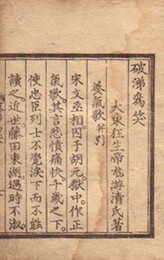 破涕為笑
大東狂生帝尨游清氏著
養氣歌 并引
宋文丞相囚于胡元獄中作正
氣歌其言悲憤痛快千歲之下
使忠臣列士不覺淚下而不能
讀之近世藤田東湖遇時不淑